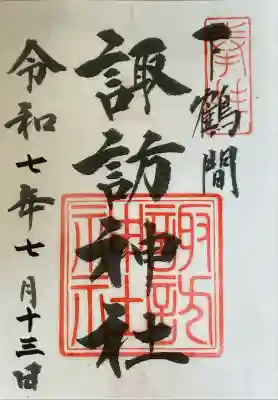 奉拝
下鶴間
諏訪神社
諏訪神社
令和七年七月十三日